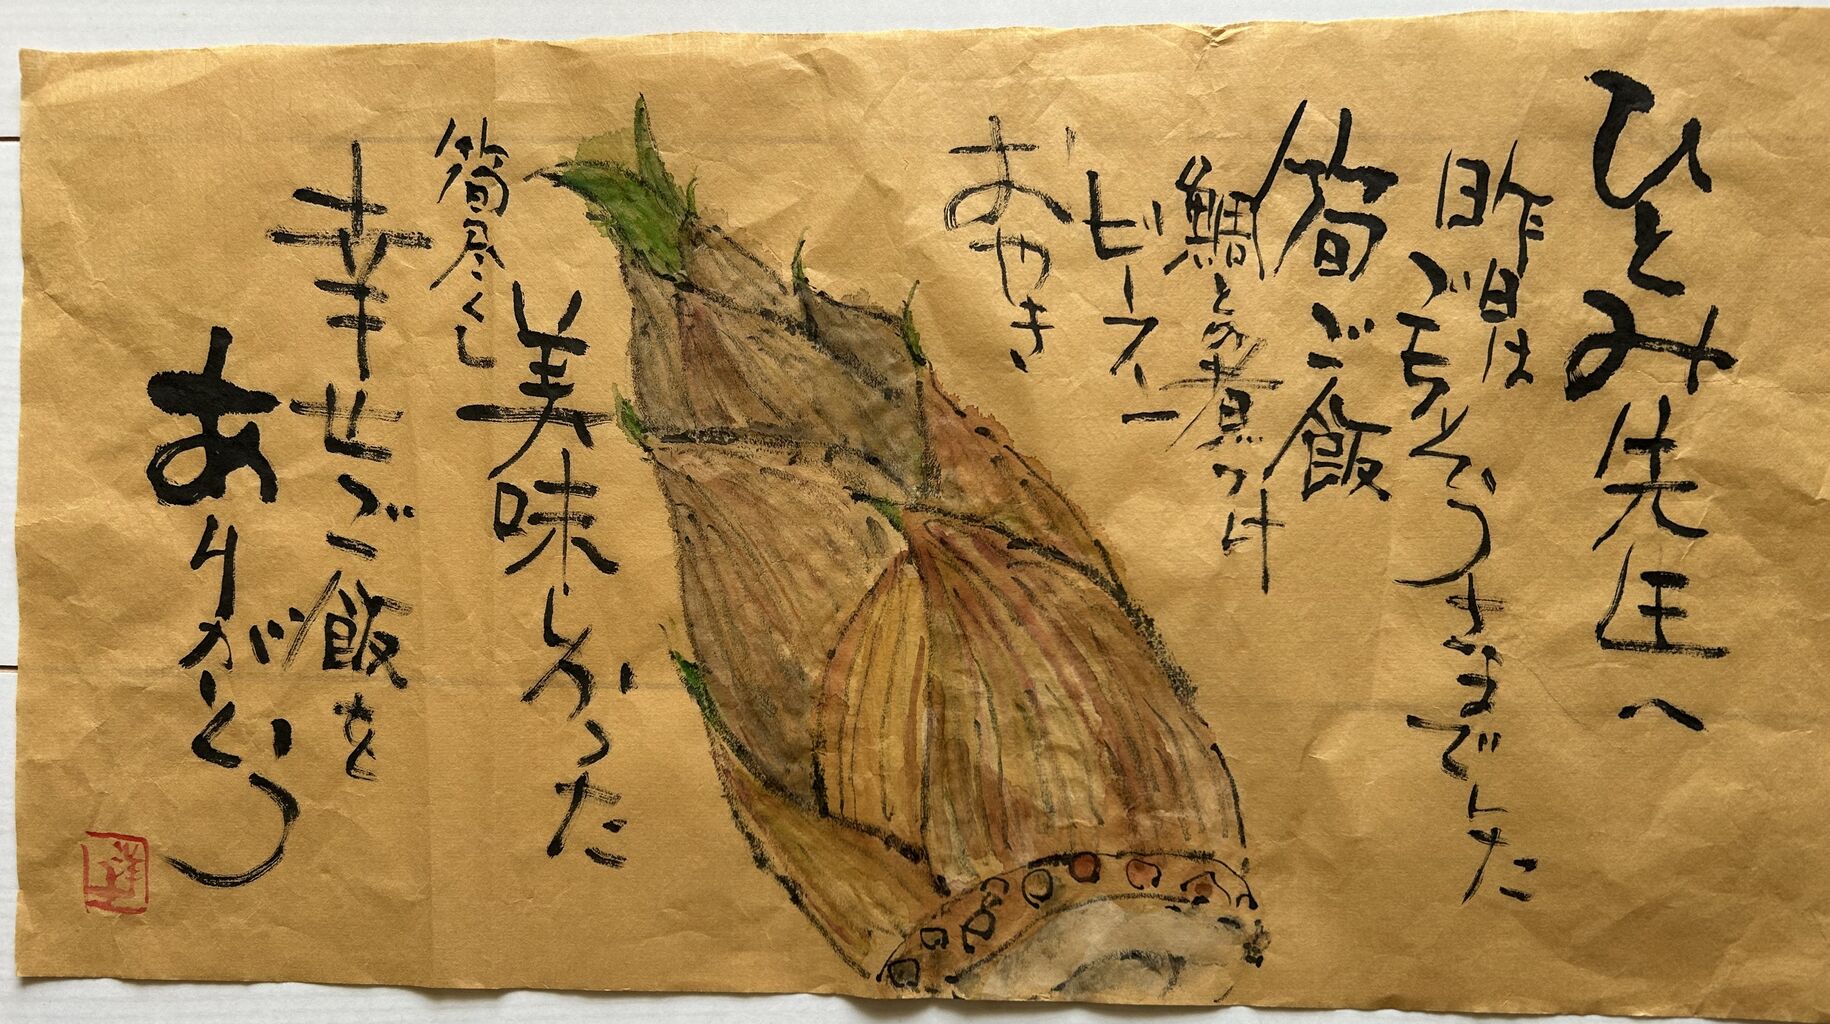 ひとみ先生へ
昨日は
ごちそうさまでした
筍ご飯
鯛との煮つけ
ビーフー
おやき
美味しかった
筍尽くし
幸せご飯を
ありがとう